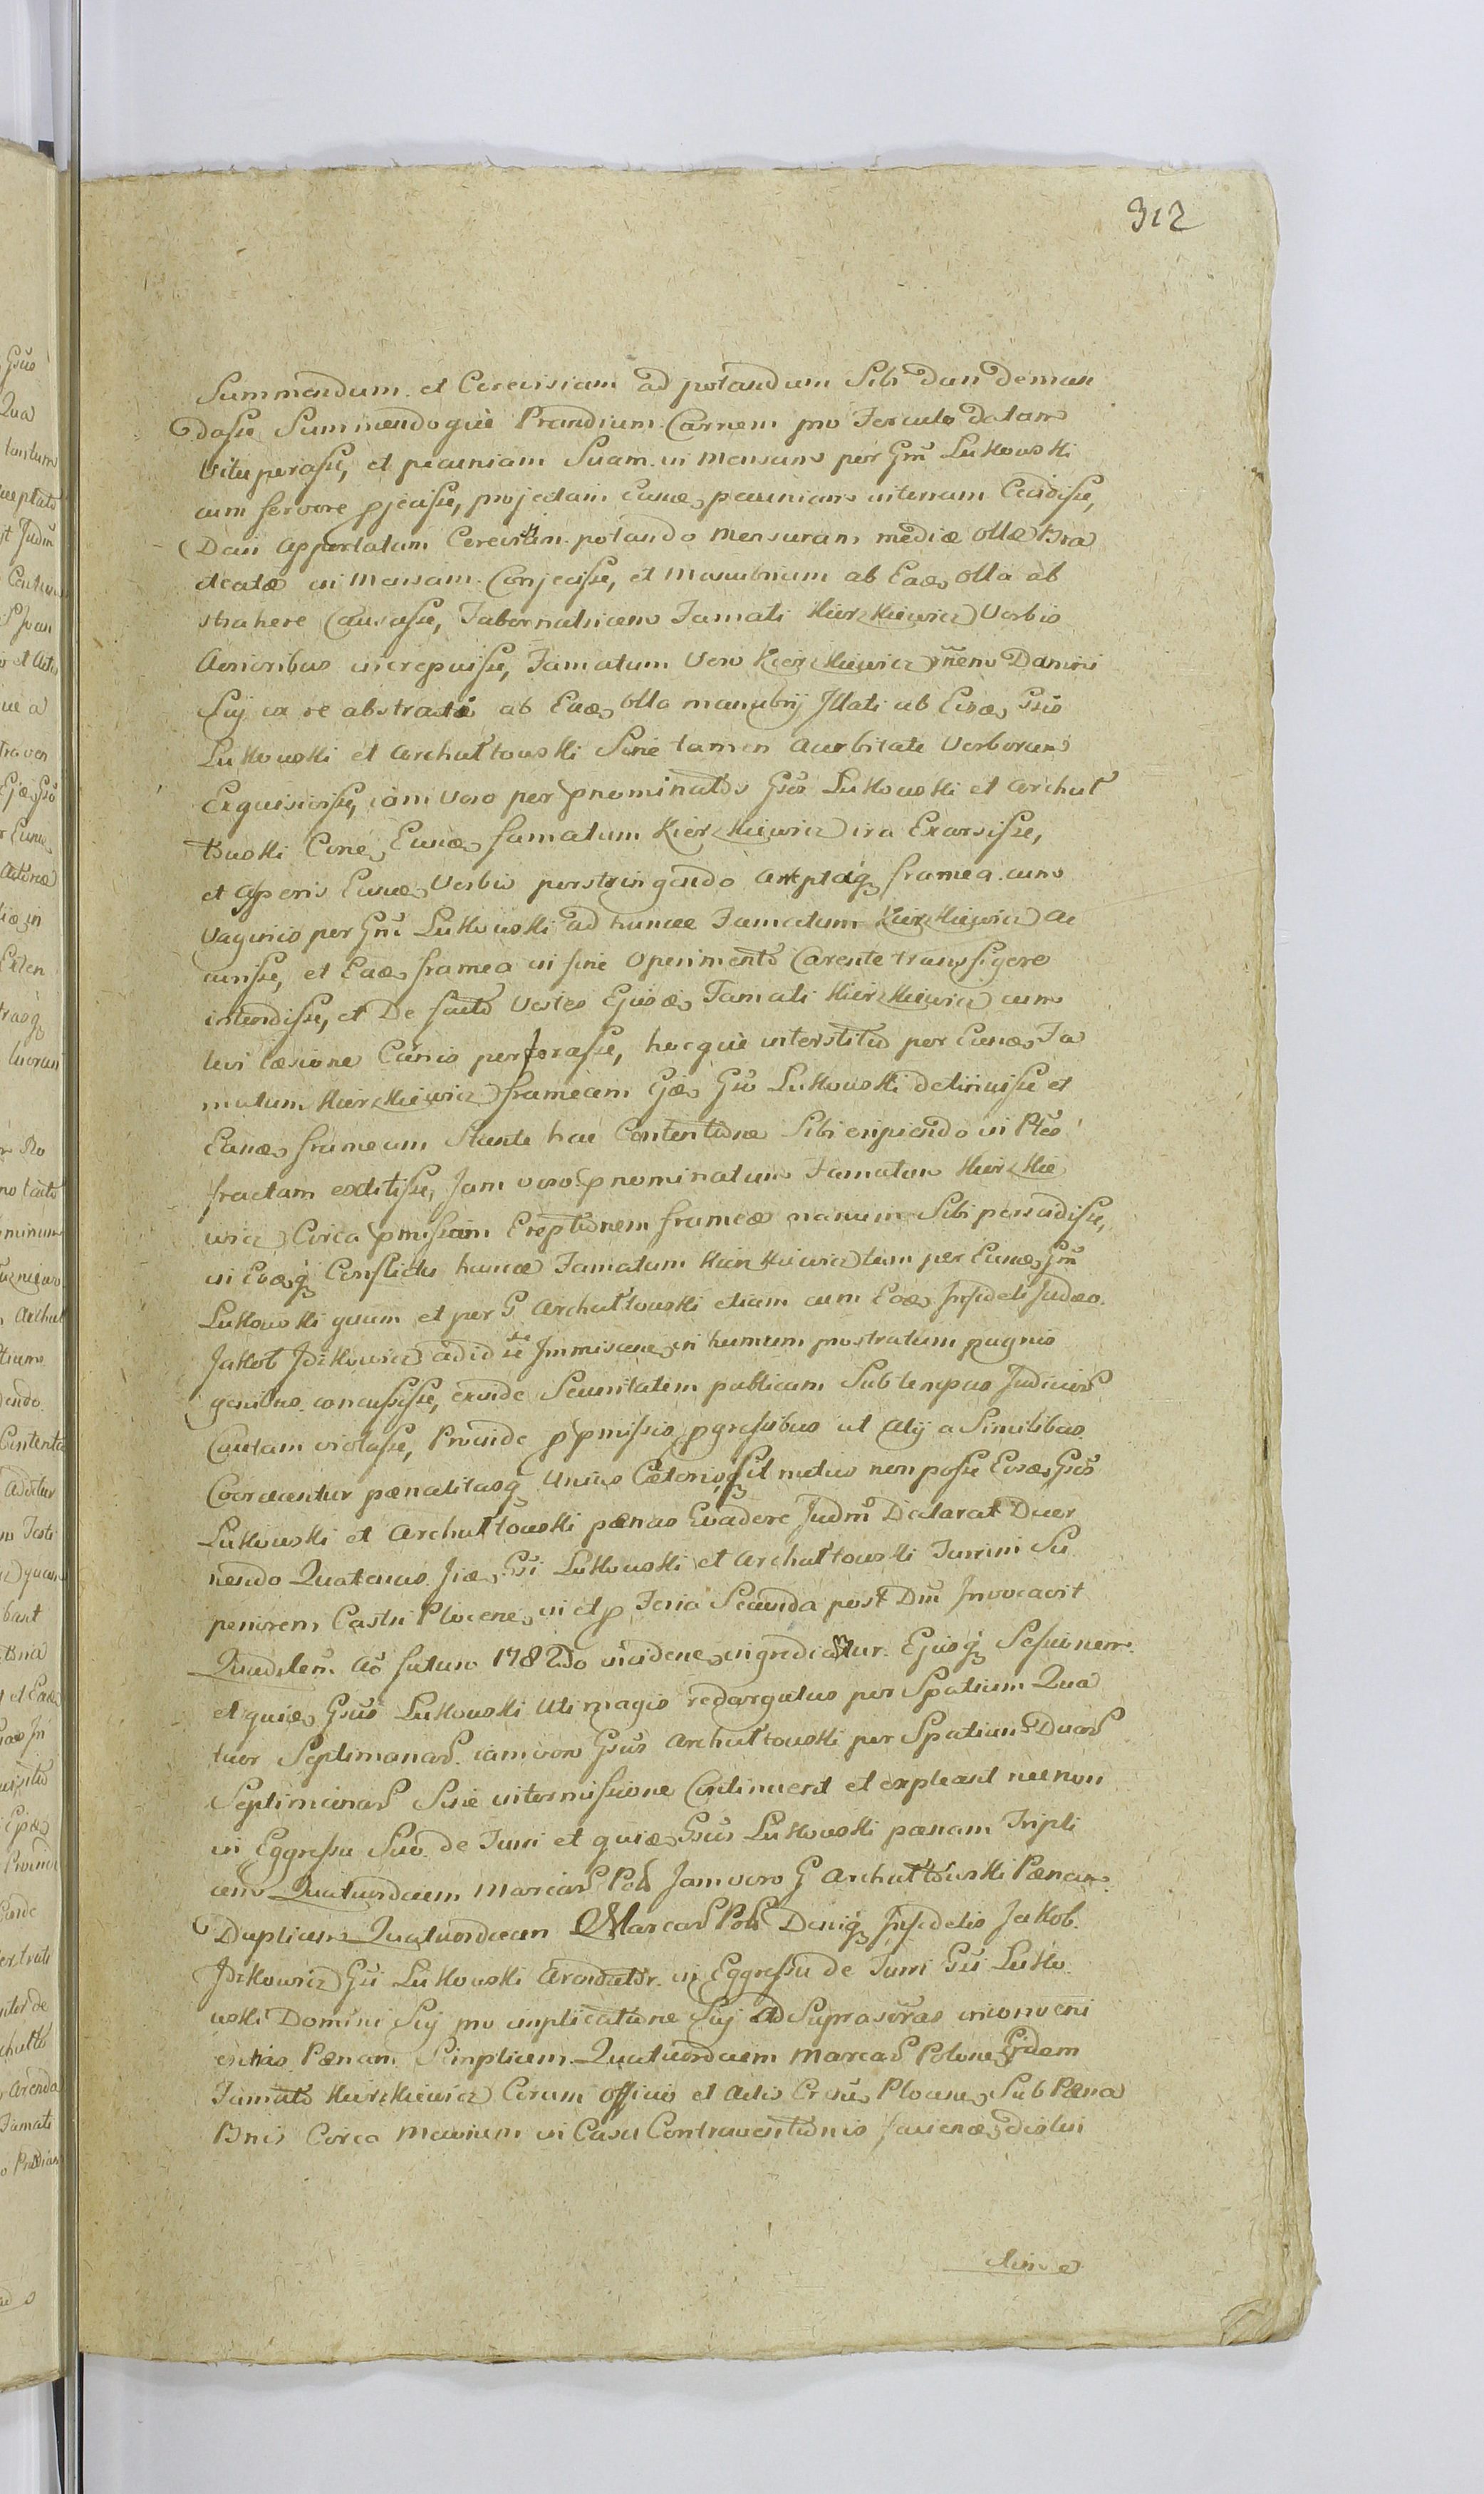 312
Summendum et Cerevisiam ad potandum Sibi Dari Deman
dasse Summendoque Prandium Carnem pro Ferculo datam
vituperasse, et pecuniam Suam in mensam per Gnm Lukowski
cum fervore pjecisse, projectam eamq pecuniam in terram Cecidisse,
Dein Apportatam Cerevisiam potando mensuram mediæ ollæ Bra
cteatæ in Mensam Conjecisse, et Manubrium ab Eaq olla ab
strahere Causasse, Tabernatricem Famati Kierzkiewicz Verbis
Acrioribus increpuisse, Famatum Vero Kierzkiewicz Domini
Sui ex re abstracti ab Eaq olla manubrij Illati ab Eisq Gsis
Lukowski et Archuttowski Sine tamen acerbitate Verborum
Exquisivisse, iam vero per pnominatos Gsos Lukowski et Archut
towski Cone Eunq famatum Kierzkiewicz ira Exarsisse,
et Asperis Eunq Verbis perstringendo areptaq framea cum
vaginis per Gnm Lukowski ad huncce Famatum Kierzkiewicz ac
currisse, et Eaq framea in fine Operimento Carente transfigere
intendisse, et De facto Vestes Ejusq Famati Kierzkiewicz cum
levi læsione Carnis perforasse, hocque interstitio per Eunq Fa
matum Kierzkiewicz frameam Ejq Gsi Lukowski detinuisse et
Eamq frameam Stante hac Contentione Sibi eripiendo in Ptes
fractam extitisse, Jam vero pnominatum Famatum Kierzkie
wicz Circa pmissam Ereptionem frameæ manum Sibi perscidisse,
in Eoq Conflictu huncce Famatum Kierzkiewicz tam per Eunq Gnm
Lukowski quam et per G Archuttowski etiam cum Eoq Infideli Judæo
Jakob Jckowicz ad id se Immiscene in humum prostratum pugnis
genibus concussisse, exinde Securitatem publicam Sub tempus Judicior
Cautam violasse, Proinde p pmissis pgressibus ut Alij a Similibus
Coerceantur pænalitasq Unius Cæteris Sit metus non posse Eosq Gsos
Lukowski et Archuttowski pænas Evadere Judm Declarat Decer
nendo Quatenus Jiq Gsi Lukowski et Archuttowski Turrim Su
periorem Castri Plocene in et p Feria Secunda post Dnm Invocavit
Quadrlem Ao futuro 1782do incidene ingrediantur Ejusq Sessionem
et quiq Gsus Lukowski Uti magis redargutus per Spatium Qua
tuor Septimanar iam vero Gsus Archuttowski per Spatium Duar
Septimanar Sine intermissione Continuent et expleant necnon
in Eggressu Suo de Turri et quiq Gsus Lukowski pænam Tripli
cem Quatuordecim Marcar Pol Jam vero G Archuttowski Pænam
Duplicem Quatuordecim Marcar Pol Deniq Infidelis Jakob
Jckowicz Gsi Lukowski Arendator in Eggressu de Turri Gsi Luko
wski Domini Sui pro implicatione Sui Ad Suprascras inconveni
entias Pænam Simplicem Quatuordecim Marcar Polone Eidem
Famato Kierzkiewicz Coram Officio et Actis Crsu Plocene Sub Pæna
Bnis Circa manum in Casu Contraventionis